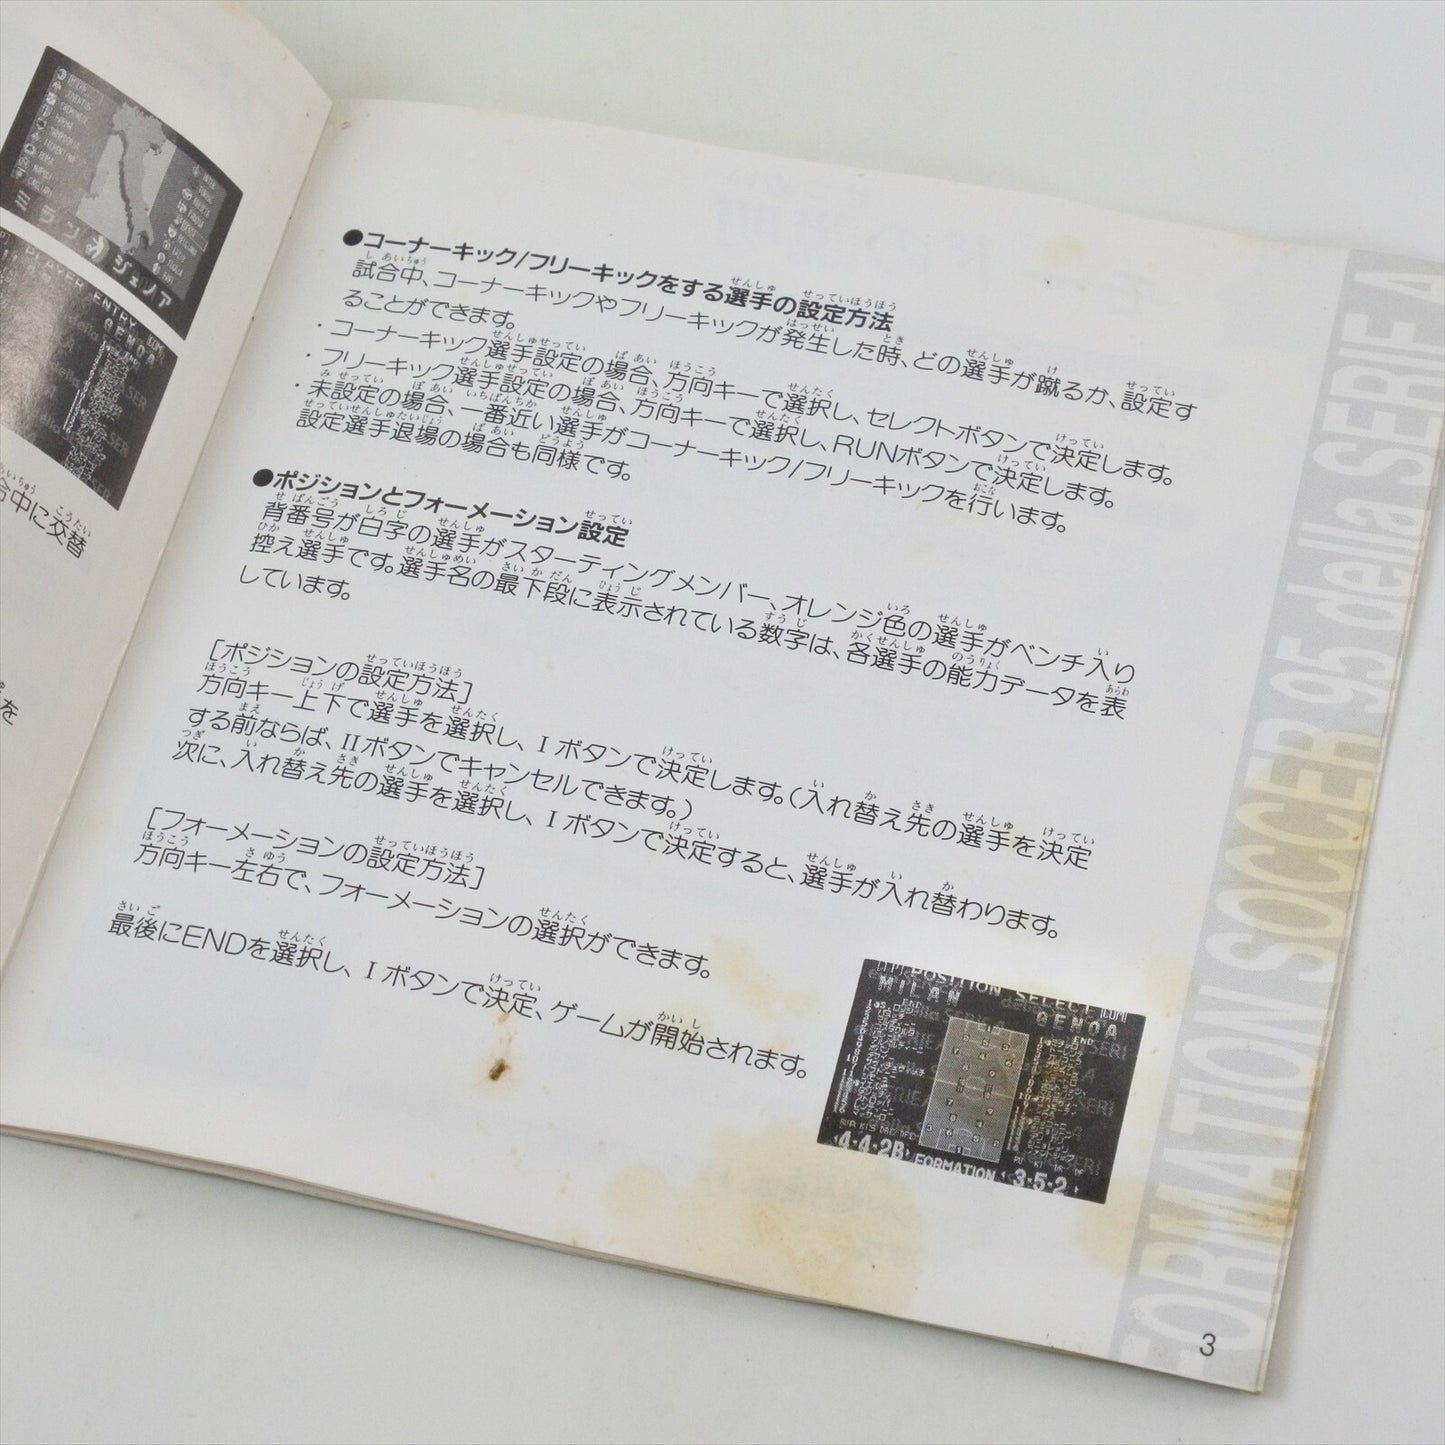 ミラン ジェノア
PLAYER ENTRY
GENOA
●コーナーキック/フリーキックをする選手の設定方法
試合中、コーナーキックやフリーキックが発生した時、どの選手が蹴るか、設定す
ることができます。
・コーナーキック選手設定の場合、方向キーで選択し、セレクトボタンで決定します。
・フリーキック選手設定の場合、方向キーで選択し、RUNボタンで決定します。
・未設定の場合、一番近い選手がコーナーキック/フリーキックを行います。
設定選手退場の場合も同様です。
●ポジションとフォーメーション設定
背番号が白字の選手がスターティングメンバー、オレンジ色の選手がベンチ入り
控え選手です。選手名の最下段に表示されている数字は、各選手の能力データを表
しています。
[ポジションの設定方法]
方向キー上下で選手を選択し、Iボタンで決定します。(入れ替え先の選手を決定
する前ならば、IIボタンでキャンセルできます。)
次に、入れ替え先の選手を選択し、Iボタンで決定すると、選手が入れ替わります。
[フォーメーションの設定方法]
方向キー左右で、フォーメーションの選択ができます。
最後にENDを選択し、Iボタンで決定、ゲームが開始されます。
POSITION SELECT
MILAN
GENOA
END
END
4-4-2B FORMATION 3-5-2
FORMATION SOCCER 95 della SERIE A
3
中に交替
を